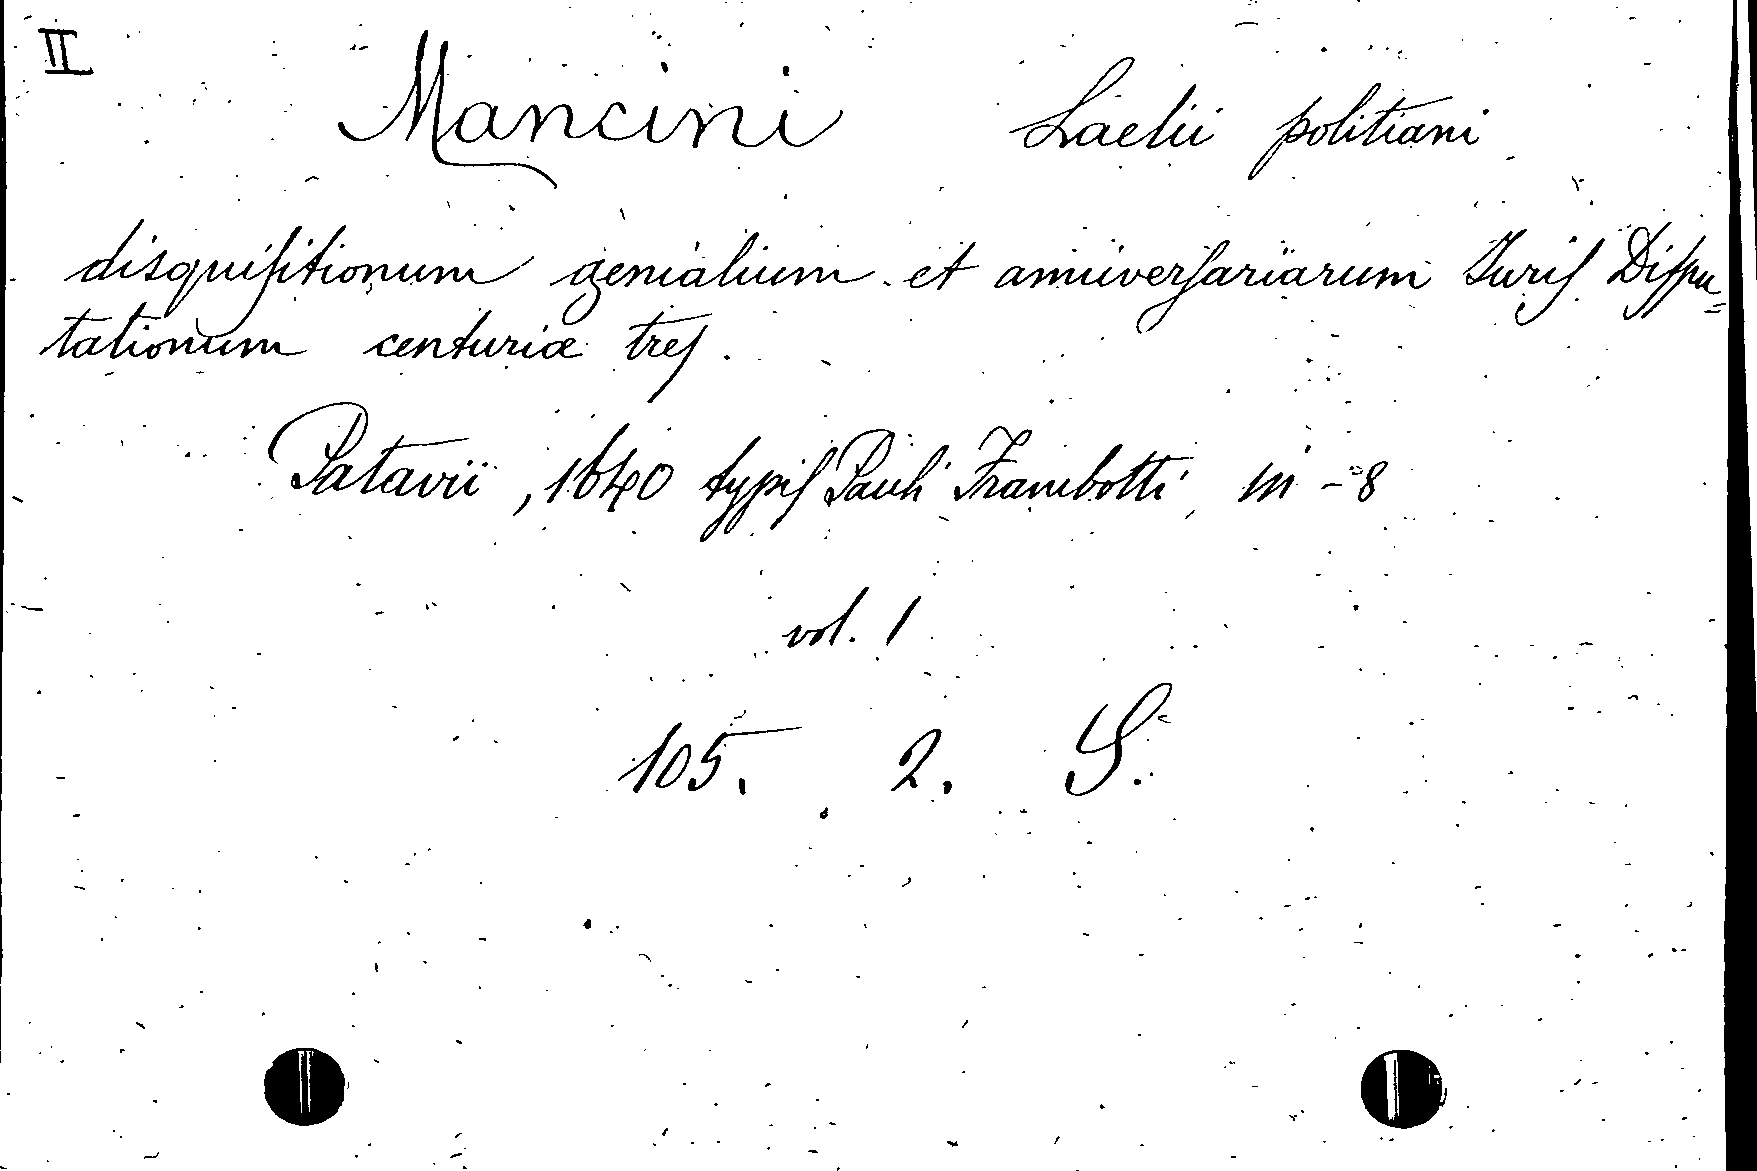 II
Mancini Laelii politiani
disquiſitionum genialium et anniverſariarum Juriſ Diſpu=
tationum centuriæ treſ.
Patavii, 1640 typiſ Pauli Frambotti in-8
vol. 1
105. 2. S.